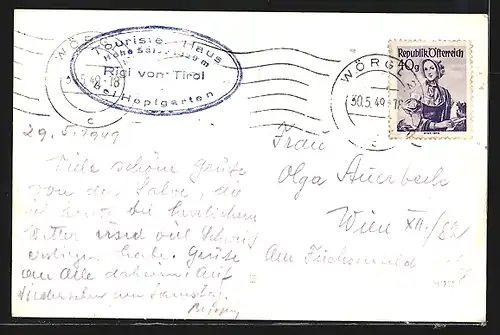 Touristen-Haus
Hohe Salve 1829 m
Rigi von Tirol
bei Hopfgarten
WÖRGL
30.5.49-18
c
WÖRGL
30.5.49-18
c
Republik Österreich
40g
29.5.1949
Viele schöne Grüße
von der Salve, die
ich heute bei herrlichem
Wetter und viel Schweiß
erstiegen habe. Grüße
an Alle daheim! Auf
Wiedersehen am Samstag.
Frau
Olga Auerbeck
Wien XII./82
Am Fuchsenwald